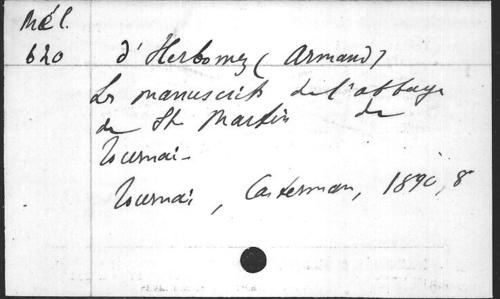 Mél.
620
d'Herbomez (Armand)
Les manuscrits de l'abbaye
de St Martin de
Tournai -
Tournai, Casterman, 1890, 8